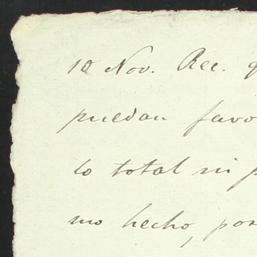 10 Nov. Rec. q
puedan favo
lo total ni p
mo hecho, por